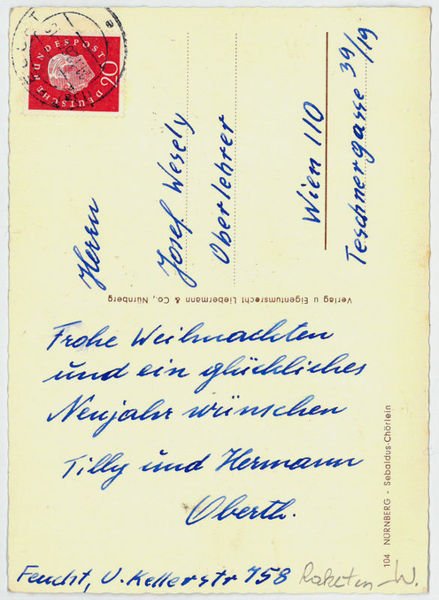 DEUTSCHE BUNDESPOST
20
Herrn
Josef Wesely
Oberlehrer
Wien 110
Teschnergasse 39/19
Verlag u Eigentumsrecht Liebermann & Co., Nürnberg
Frohe Weihnachten
und ein glückliches
Neujahr wünschen
Tilly und Hermann
Oberth.
Feucht, U.-Kellerstr 158
Raketen-W.
104 NÜRNBERG - Sebaldus-Chörlein